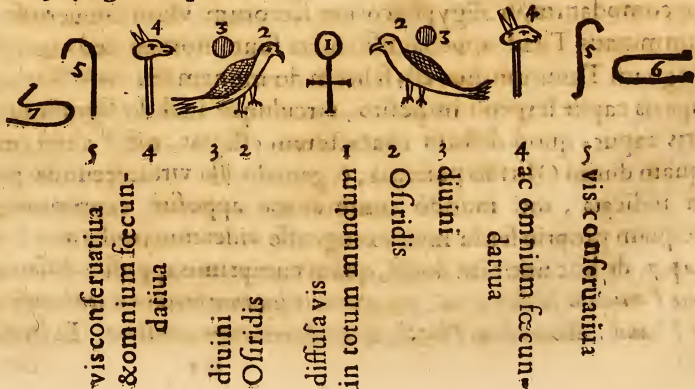 7 5 4 3 2 1 2 3 4 5 6
5 4 3 2 1 2 3 4 5
vis conſeruatiua
& omnium fœcun-
datiua
diuini
Oſiridis
diffuſa vis
in totum mundum
Oſiridis
diuini
ac omnium fœcun-
datiua
vis conſeruatiua